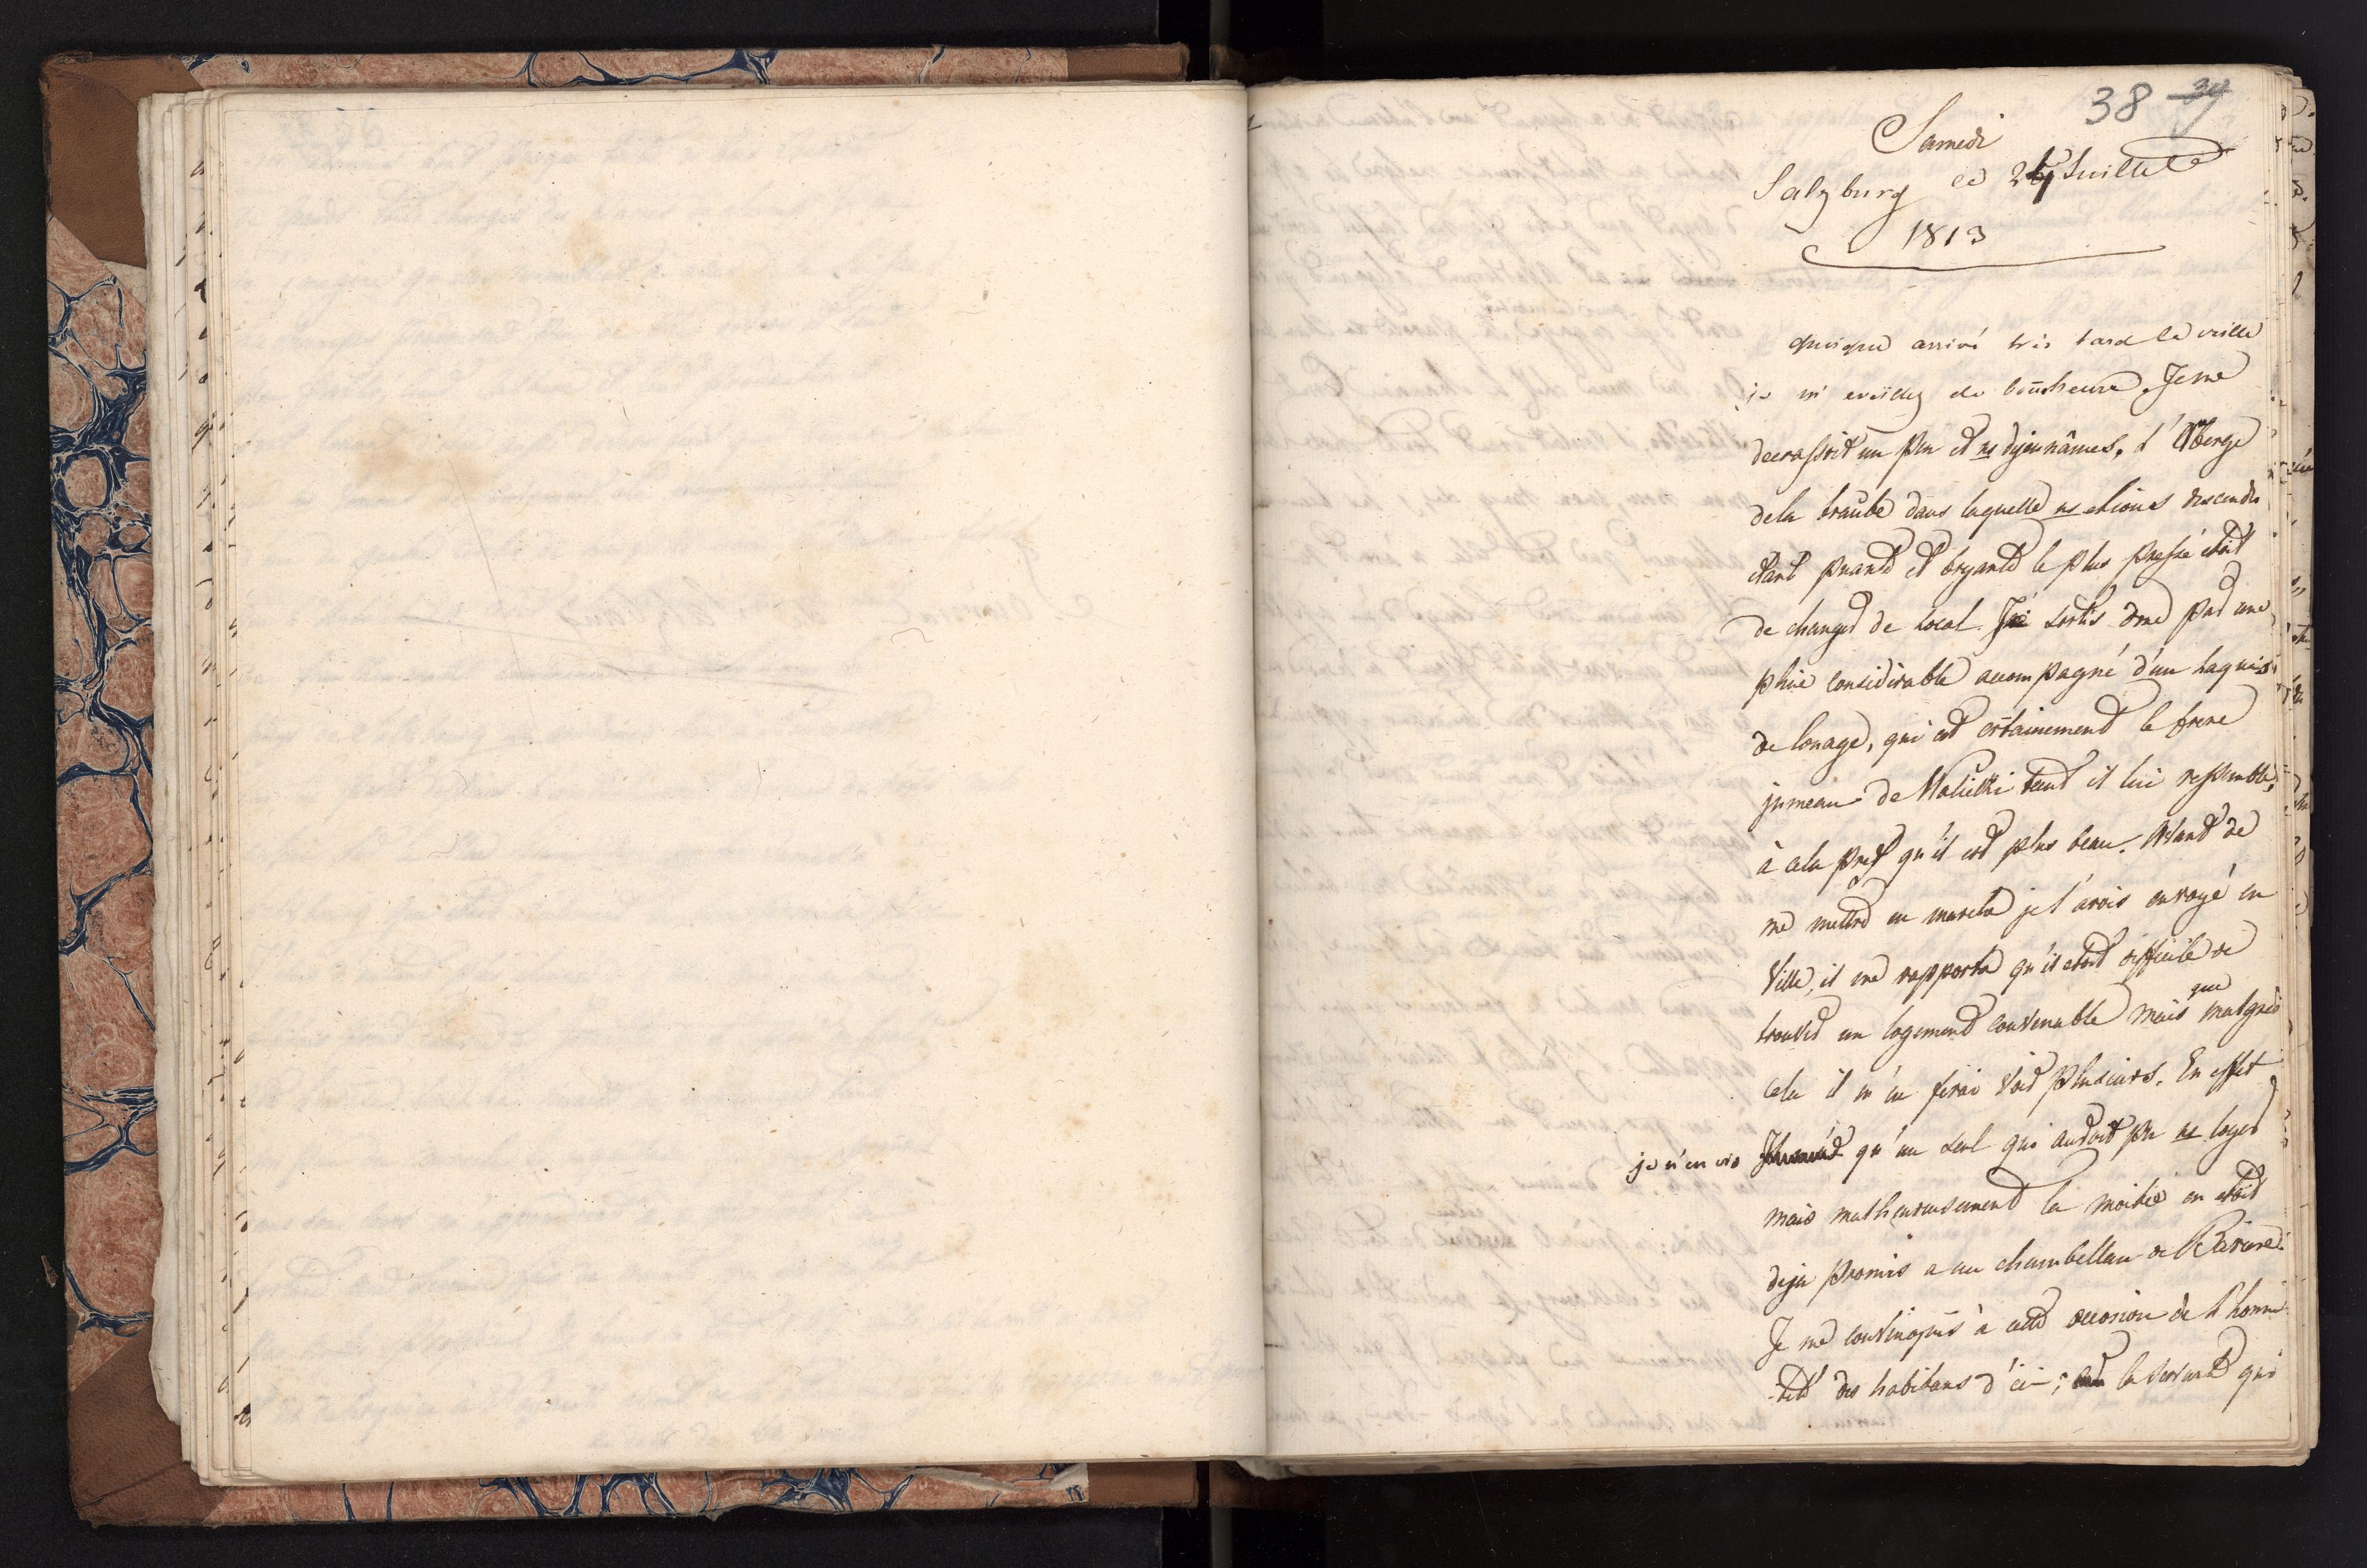 38 34
Samedi
Salzburg le 24 Juillet
1813
quoique arrivé très tard la veille
je m'eveillez de bonheure. Je me
decrassoit un peu et ns dejeunâmes. l'Auberge
de la traube dans laquelle ns etions descendu
etant puante et bryante le plus pressé etoit
de changer de local. Je sortis donc par une
pluie considèrable accompagné d'un laquais
de louage, qui est certainement le frere
jumeau de Malicki tant il lui ressemble,
à cela près qu'il est plus beau. Avant de
me mettre en marche je l'avois envoyé en
Ville, il me rapporta qu'il etoit difficile de
trouver un logement convenable mais que malgrès
cela il m'en feroi voir plusieurs. En effet
je n'en vis qu'un seul qui auroit pu ns loger
mais malheureusement la moitié en etoit
deja promis a un chambellan de Baviere.
Je me convinquis à cette occasion de l'honne-
teté des habitans d'ici; la servante qui